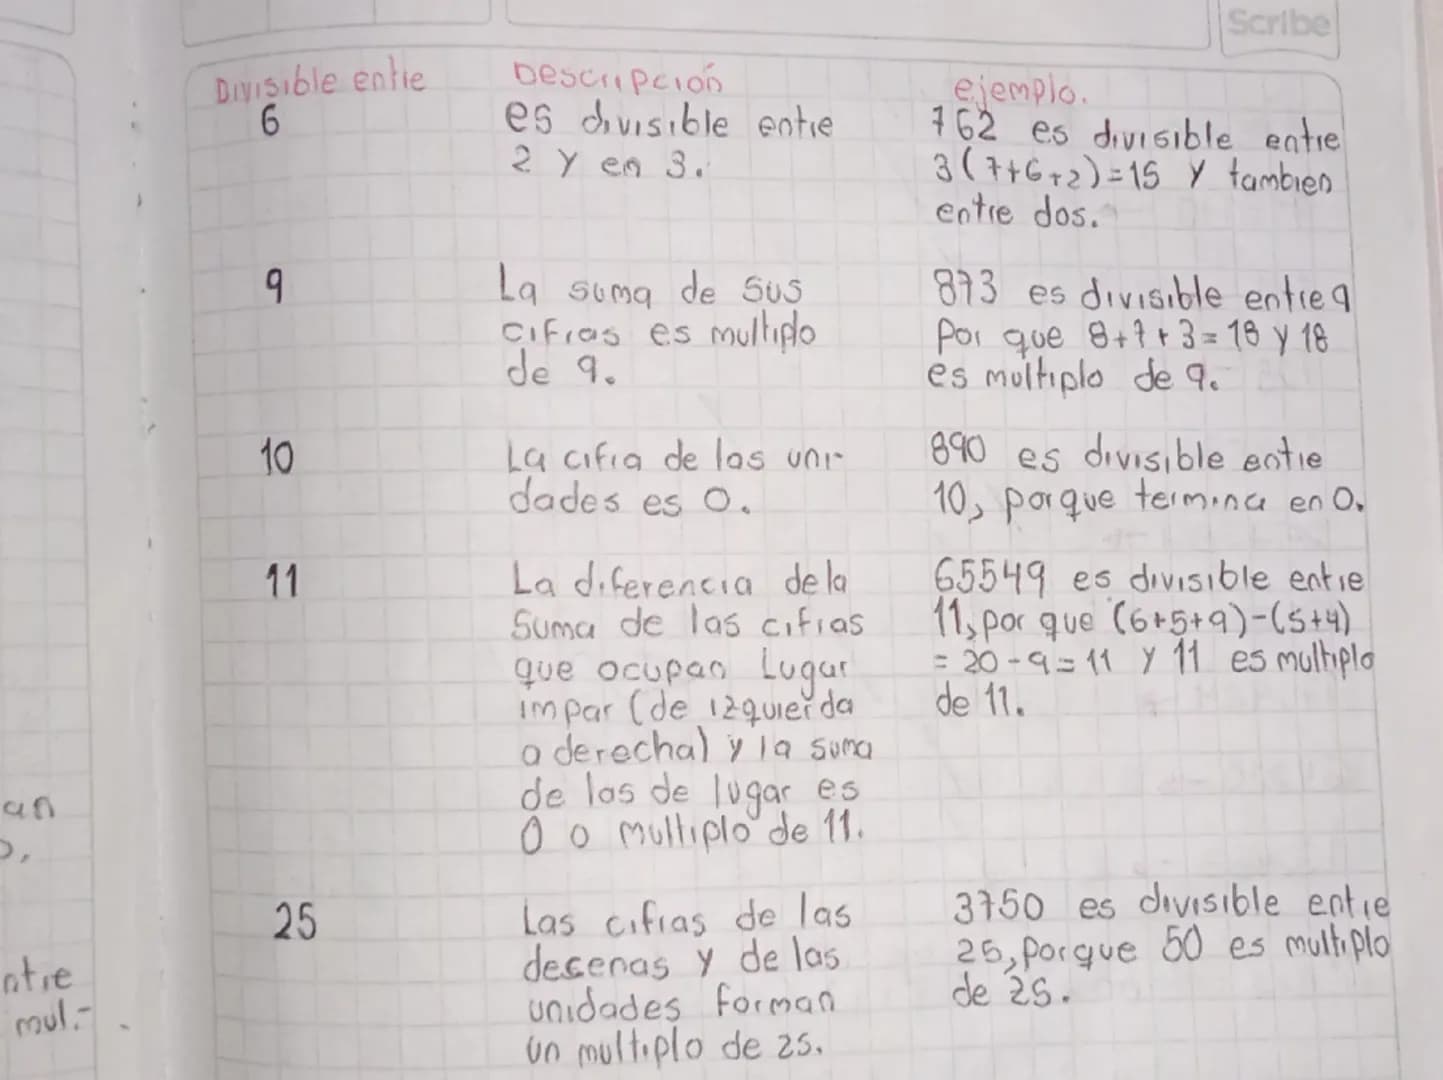 Scribe
Divisible entre
Descripcion
ejemplo.
6
es divisible entre
2 y en 3.
762 es divisible entre
3(7+6+2)=15 y tambien
entre dos.
9
La suma de sus
cifras es multiplo
de 9.
873 es divisible entre 9
Por que 8+7+3=18 y 18
es multiplo de 9.
10
La cifra de las uni-
dades es 0.
890 es divisible entre
10, porque termina en 0.
11
La diferencia de la
Suma de las cifras
que ocupan Lugar
impar (de izquierda
a derecha) y la suma
de las de lugar es
0 o multiplo de 11.
65549 es divisible entre
11, por que (6+5+9)-(5+4)
=20-9=11 y 11 es multiplo
de 11.
25
Las cifras de las
decenas y de las
unidades forman
un multiplo de 25.
3750 es divisible entre
25, porque 50 es multiplo
de 25.
an
ntre
mul.-